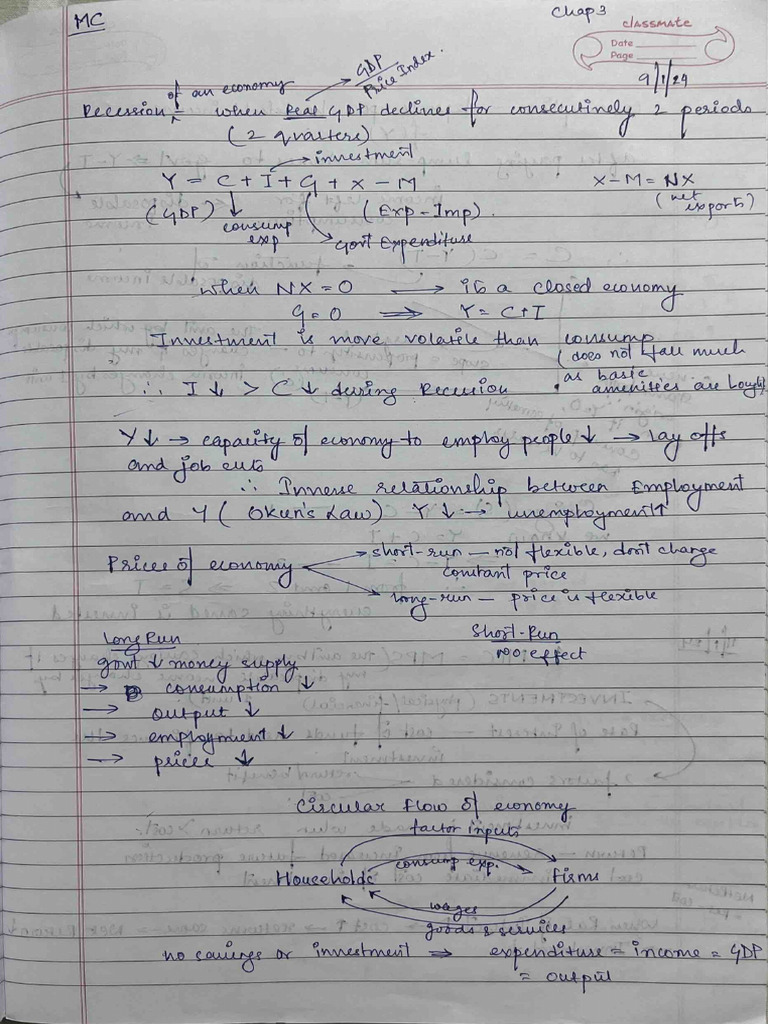 MC
Chap 3
classmate
Date
Page
9/1/24
of an economy
GDP
Price Index.
Recession - when Real GDP declines for consecutively 2 periods
(2 quarters)
investment
Y = C + I + G + X - M
X - M = NX
(net exports)
(GDP)
consump exp
(Exp - Imp).
Govt Expenditure
when NX = 0 → its a closed economy
G = 0 ⇒ Y = C + I
Investment is more volatile than consump
(does not fall much
as basic
amenities are
∴ I↓ > C↓ during Recession.
Y↓ → capacity of economy to employ people↓ → lay offs
and job cuts
∴ Inverse relationship between Employment
and Y (Okun's Law) Y↓ → unemployment↑
Prices of economy
short-run - not flexible, dont change
constant price
long-run - price is flexible
Long Run
Short-Run
govt ↓ money supply
no effect
→ consumption ↓
→ output ↓
→ employment ↓
→ prices ↓
Circular Flow of economy
factor inputs
consump exp.
Households
firms
wages
goods & services
no savings or investment ⇒ expenditure = income = GDP
= output